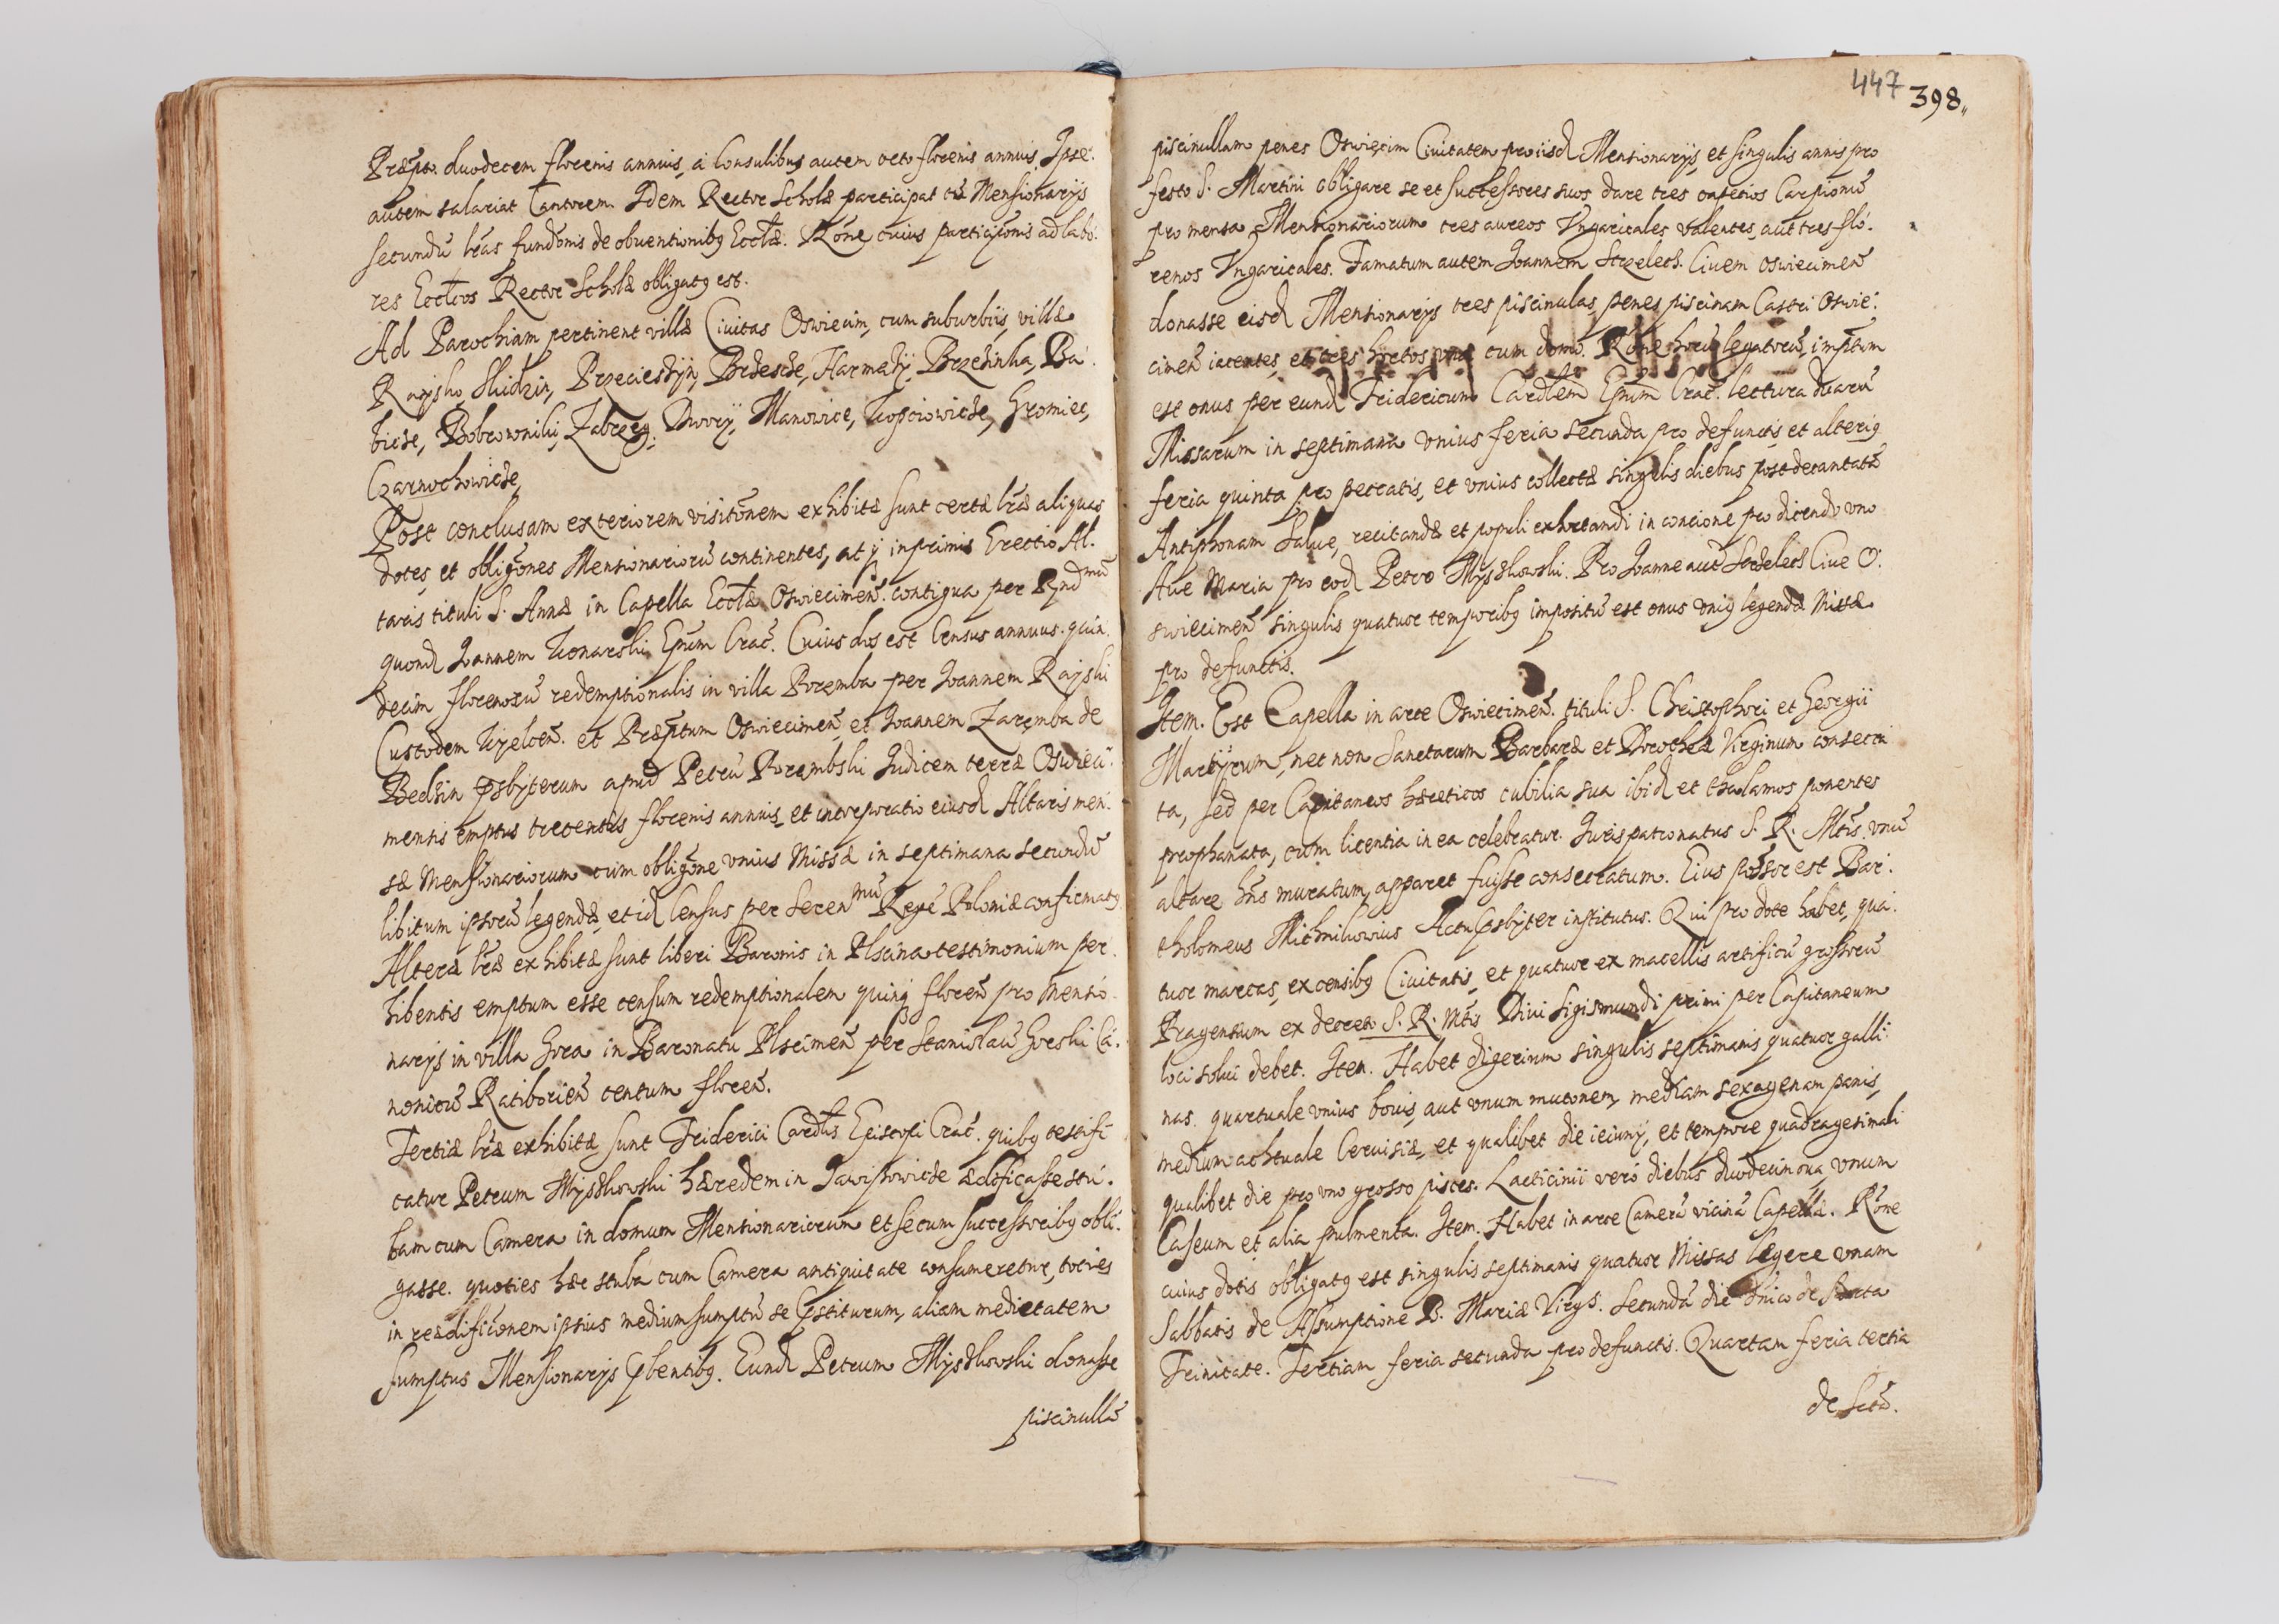 Præpto. duodecem florenis annuis, a Consulibus autem octo florenis annuis. Ipse.
autem salariat Cantorem. Idem Rector Scholæ participat cū Mensionarijs
secundū lr̃as fundõnis de obuentionibq Eccl̃æ. Rõne cuius particip̃onis ad labo.
res Eccl̃cos Rector Scholæ obligatq est.
Ad Parochiam pertinent villæ Ciuitas Oswiecim, cum suburbijs, villæ
Raysko Skidzin, Przeciesdzÿn, Brzescze, Harmęzÿ, Brzezinka, Ba.
bicze, Bobrowniki, Zabrzeg, Dworÿ, Manowice, Kosciowicze, Gromiec,
Czarnochowicze,
Post conclusam exteriorem visitõnem exhibitæ sunt certæ lr̃æ aliquas
dotes, et obligõnes Mensionariorū continentes, at q inprimis Erectio Al.
taris tituli S. Annæ in Capella Eccl̃æ Oswiecimeñ. contigua per Rnd mū
quond Joannem Konarski Ep̃um Crac̃. Cuius dos est Census annuus quin.
decim florenorū redemptionalis in villa Poremba per Joannem Rayski
Custodem Kyelceñ. et Præp̃tum Oswiecimeñ, et Joannem Zaremba de
Bedzin p̃sbÿterum apud Petrū Porembski Judicem terræ Oswieci.
mensis emptus trecentis florenis annuis, et incorporatio eiusd Altaris men.
sæ Mensionariorum cum obligõne vnius Missæ in septimana secundū
libitum ipsorū legendæ, et id Census per Seren mū Regẽ Poloniæ confirmatq
Alteræ lr̃æ exhibitæ sunt liberi Baronis in Plscina testimonium per.
hibentis emptum esse censum redemptionalem quinq floreñ pro Mensio.
narijs in villa Gora in Baronatu Plscimeñ per Stanislaū Gorski Ca.
nonicū Ratiborieñ centum floreñ.
Tertiæ lr̃æ exhibitæ sunt Friderici Cardlis Episcopi Crac̃. quibq testifi.
catur Petrum Mÿszkowski hæredem in Jawissowicze ædificasse stu.
bam cum Camera in domum Mensionariorum et secum successoribq obli.
gasse. quoties hæc stuba cum Camera antiquitate consumeretur, toties
in reædificõnem ipsius medium sumptū se p̃stiturum, aliam medietatem
sumptus Mensionarijs p̃bentibq. Eund Petrum Mÿszkowski donasse
piscinullā
447 398.
piscinullam penes Oswięcim Ciuitatem pro iisd Mensionarijs, et singulis annis pro
festo S. Martini obligare se et successores suos dare tres Carpionū
pro mensa Mensionariorum tres aureos Vngaricales valentes, aut tres flo.
renos Vngaricales. Famatum autem Joannem Strzelecz. Ciuem Oswiecimeñ
donasse eisd Mensionarijs tres piscinulas, penes piscinam Castri Oswie.
cimeñ iacentes, et tres hortos vna cum domo. Rõne horū legatorū, imp̃tum
est onus per eund Fridericum Cardlem Ep̃um Crac̃. lectura duarū
Missarum in septimana vnius feria secunda pro defunctis, et alteriq
feria quinta pro peccatis, et vnius collectæ singulis diebus post decantatā
Antiphonam Salue, recitandæ et populi exhortandi in concione pro dicendo vno
Aue Maria pro eod Petro Mÿszkowski. Pro Joanne aut Strzelecz Ciue O.
swiecimeñ singulis quatuor temporibq impositū est onus vniq legendæ Missæ
pro defunctis.
Item. Est Capella in arce Oswiecimeñ. tituli S. Christophori et Georgii
Martÿrum, nec non Sanctarum Barbaræ et Dorotheæ Virginum consecra
ta, sed per Capitaneos hæreticos cubilia sua ibid et thalamos ponentes
prophanata, cum licentia in ea celebratur. Juris patronatus S. R. Mtis. vnū
altare hñs muratum, apparet fuisse consecratum. Eius possor est Bar.
tholomeus Michnikowius Actu p̃sbÿter institutus. Qui pro dote habet, qua.
tuor marcas, ex censibq Ciuitatis, et quatuor ex macellis artificū grossorū
Pragensium ex decreto S. R. Mtis Diui Sigismundi primi per Capitaneum
loci solui debet. Item. Habet digerium singulis septimanis quatuor galli.
nas. quartuale vnius bouis, aut vnum mutonem, mediam sexagenam panis,
medium achtuale Ceruisiæ, et qualibet die ieiunij, et tempore quadragesimali
qualibet die pro vno grosso pisces. Lacticinii verò diebus duodecim oua, vnum
Caseum et alia pulmenta. Item. Habet in arce Camerā vicinā Capellæ. Rõne
cuius dotis obligatq est singulis septimanis quatuor Missas legere vnam
Sabbatis de Assumptione B. Mariæ Virgs. Secundā die Dñico de Sancta
Trinitate. Tertiam feria secunda pro defunctis. Quartam feria tertia
de Sctā.